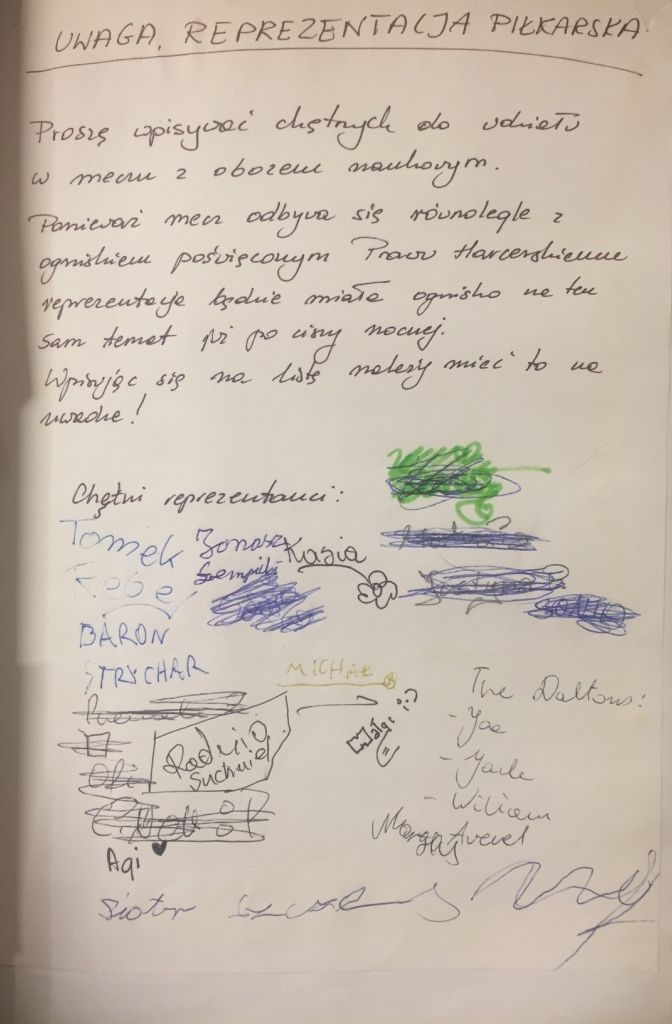 UWAGA, REPREZENTACJA PIŁKARSKA
Proszę wpisywać chętnych do udziału
w meczu z obozem naukowym.
Ponieważ mecz odbywa się równolegle z
ogniskiem poświęconym Prawu Harcerskiemu
reprezentacje będzie miała ognisko na ten
sam temat już po ciszy nocnej.
Wpisując się na listę należy mieć to na
uwadze!
Chętni reprezentanci:
Tomek
Jonasz
Kasia
BARON
STRYCHAR
MICHAŁ
Radzio
The Daltons:
- Joe
- Jack
- William
Averel
Małgi
Agi